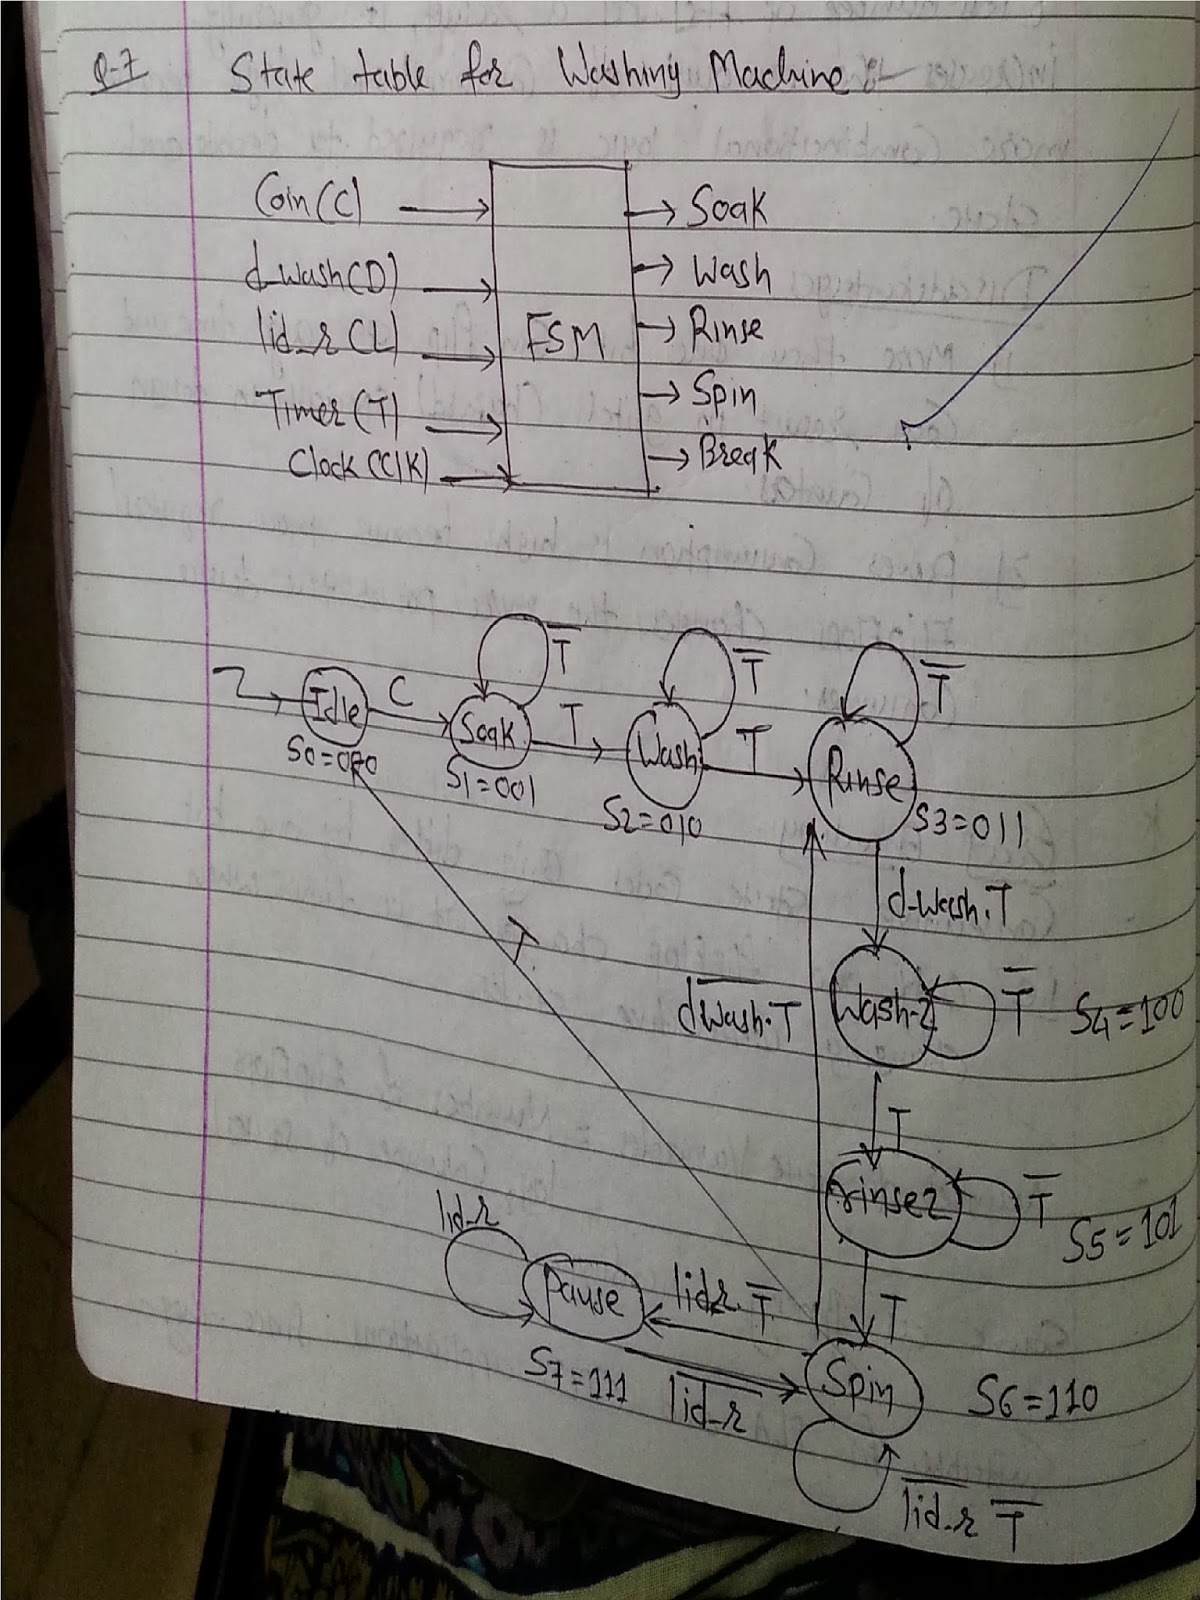 Q-7 State table for Washing Machine
Coin(C)
d_wash(D)
lid_r(L)
Timer(T)
Clock(ClK)
FSM
Soak
Wash
Rinse
Spin
Break
Idle
S0=000
C
Soak
S1=001
T̅
T
Wash
S2=010
T̅
T
Rinse
S3=011
T̅
d-wash.T
T
d͞w͞a͞s͞h͞.T
Wash-2
T̅
S4=100
T
rinse2
T̅
S5=101
T
lid_r
Pause
S7=111
lid_r.T̅
l͞i͞d͞_͞r͞
Spin
S6=110
l͞i͞d͞_͞r͞ T̅